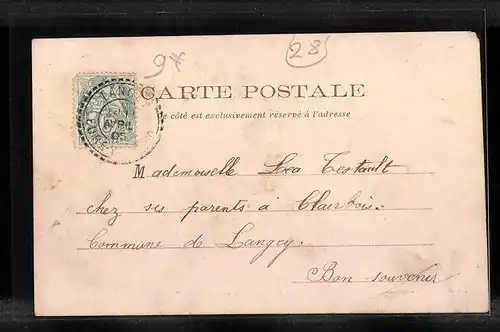 9*
28
CARTE POSTALE
Ce côté est exclusivement réservé à l'adresse
LANG
Mademoiselle Léa Testault
chez ses parents à Clairbois.
Commune de Langey.
Bon souvenir